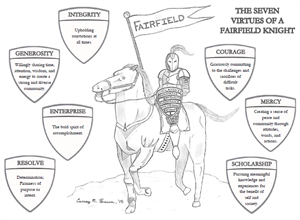 FAIRFIELD
THE SEVEN
VIRTUES OF A
FAIRFIELD KNIGHT
INTEGRITY
Upholding
convictions at
all times
GENEROSITY
Willingly sharing time,
attention, wisdom, and
energy to create a
strong and diverse
community.
ENTERPRISE
The bold spirit of
accomplishment.
RESOLVE
Determination;
Firmness of
purpose or
intent.
COURAGE
Graciously committing
to the challenges and
sacrifices of
difficult
tasks.
MERCY
Creating a sense of
peace and community
through
attitudes,
words, and
actions.
SCHOLARSHIP
Pursuing meaningful
knowledge and
experiences for the
benefit of
self and
society.